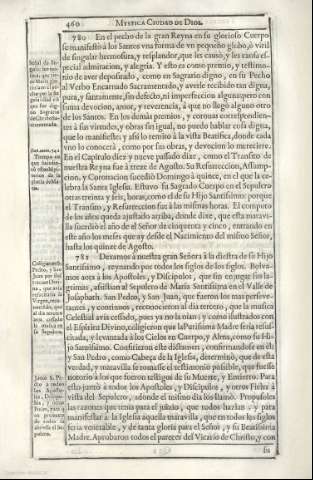 460 MYSTICA CIUDAD DE DIOS.
780 En el pecho de la gran Reyna en su glorioso Cuerpo
se manifestò à los Santos vna forma de vn pequeño globo, ò viril
de singular hermosura, y resplandor, que les causò, y les causa es-
pecial admiracion, y alegria. Y esto es como premio, y testimo-
nio de aver depositado, como en Sagrario digno, en su Pecho
al Verbo Encarnado Sacramentado, y averle recibido tan digna,
pura, y santamente, sin defecto, ni imperfeccion alguna, pero con
suma devocion, amor, y reverencia, à que no llegò alguno otro
de los Santos. En los demàs premios, y coronas correspondien-
tes à sus virtudes, y obras sin igual, no puedo hablar cosa digna,
que lo manifieste; y assi lo remito à la vista Beatifica, donde cada
vno lo conocerà, como por sus obras, y devocion lo mereciere.
En el Capitulo diez y nueve passado dixe, como el Transito de
nuestra Reyna fue à treze de Agosto. Su Resurreccion, Assump-
cion, y Coronacion sucediò Domingo à quinze, en el que la ce-
lebra la Santa Iglesia. Estuvo su Sagrado Cuerpo en el Sepulcro
otras treinta y seis horas, como el de su Hijo Santissimo; porque
el Transito, y Resurreccion fue à las mismas horas. El computo
de los años queda ajustado arriba, donde dixe, que esta maravi-
lla sucediò el año de el Señor de cinquenta y cinco, entrando en
este año los meses que ay desde el Nacimiento del mismo Señor,
hasta los quinze de Agosto.
781 Dexamos à nuestra gran Señora à la diestra de su Hijo
Santissimo, reynando por todos los siglos de los siglos. Bolva-
mos aora à los Apostoles, y Discipulos, que sin enjugar sus la-
grimas, assistian al Sepulcro de Maria Santissima en el Valle de
Josaphath. San Pedro, y San Juan, que fueron los mas perseve-
rantes, y continuos, reconocieron al dia tercero, que la musica
Celestial avia cessado, pues ya no la oian; y como ilustrados con
el Espiritu Divino, coligieron que la Purissima Madre seria resus-
citada, y levantada à los Cielos en Cuerpo, y Alma, como su Hi-
jo Santissimo. Confirieron este dictamen, confirmandose en èl;
y San Pedro, como Cabeça de la Iglesia, determinò, que de esta
verdad, y maravilla se tomasse el testimonio possible, que fuesse
notorio à los que fueron testigos de su Muerte, y Entierro. Para
esto juntò à todos los Apostoles, y Discipulos, y otros Fieles à
vista del Sepulcro, adonde el mismo dia los llamò. Propusoles
las razones que tenia para el juizio, que todos hazian, y para
manifestar à la Iglesia aquella maravilla, que en todos los siglos
seria venerable, y de tanta gloria para el Señor, y su Beatissima
Madre. Aprobaron todos el parecer del Vicario de Christo, y con
su